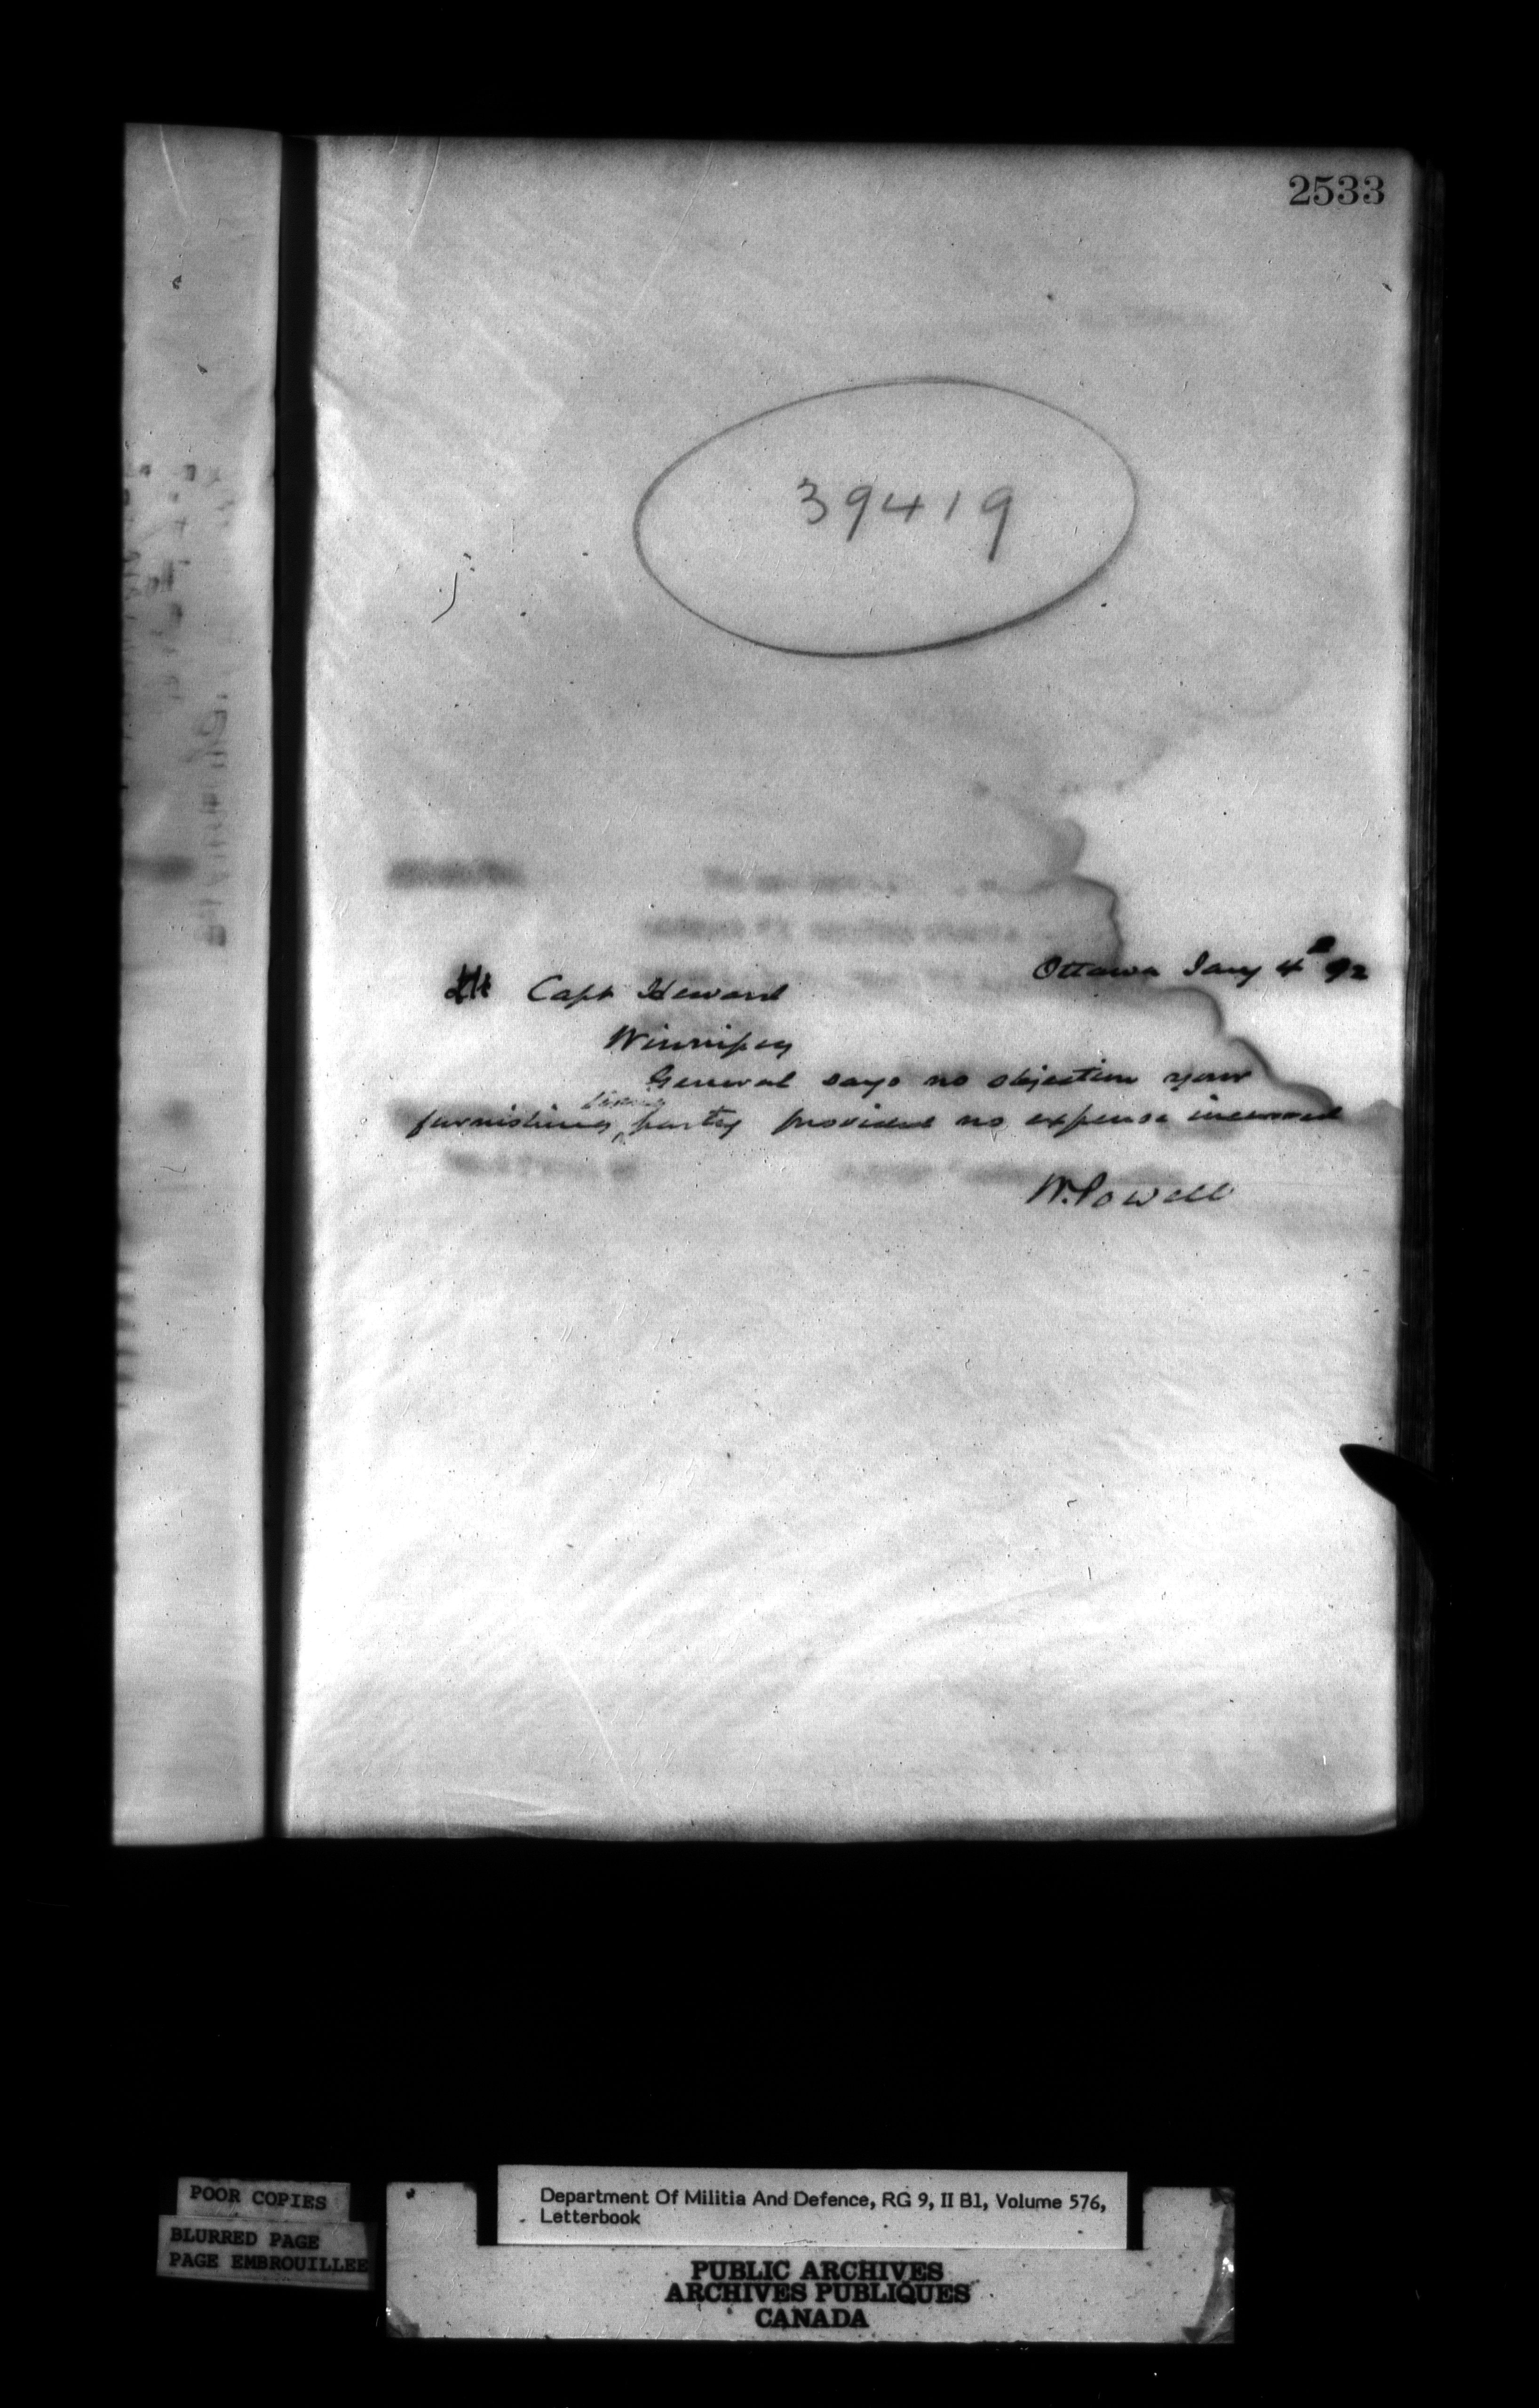 2533
39419
Ottawa Jany 4 92
Capt Heward
Winnipeg
General says no objection your
firing
furnishing party provided no expense incurred
W. Powell
POOR COPIES
BLURRED PAGE
PAGE EMBROUILLEE
Department Of Militia And Defence, RG 9, II B1, Volume 576,
Letterbook
PUBLIC ARCHIVES
ARCHIVES PUBLIQUES
CANADA